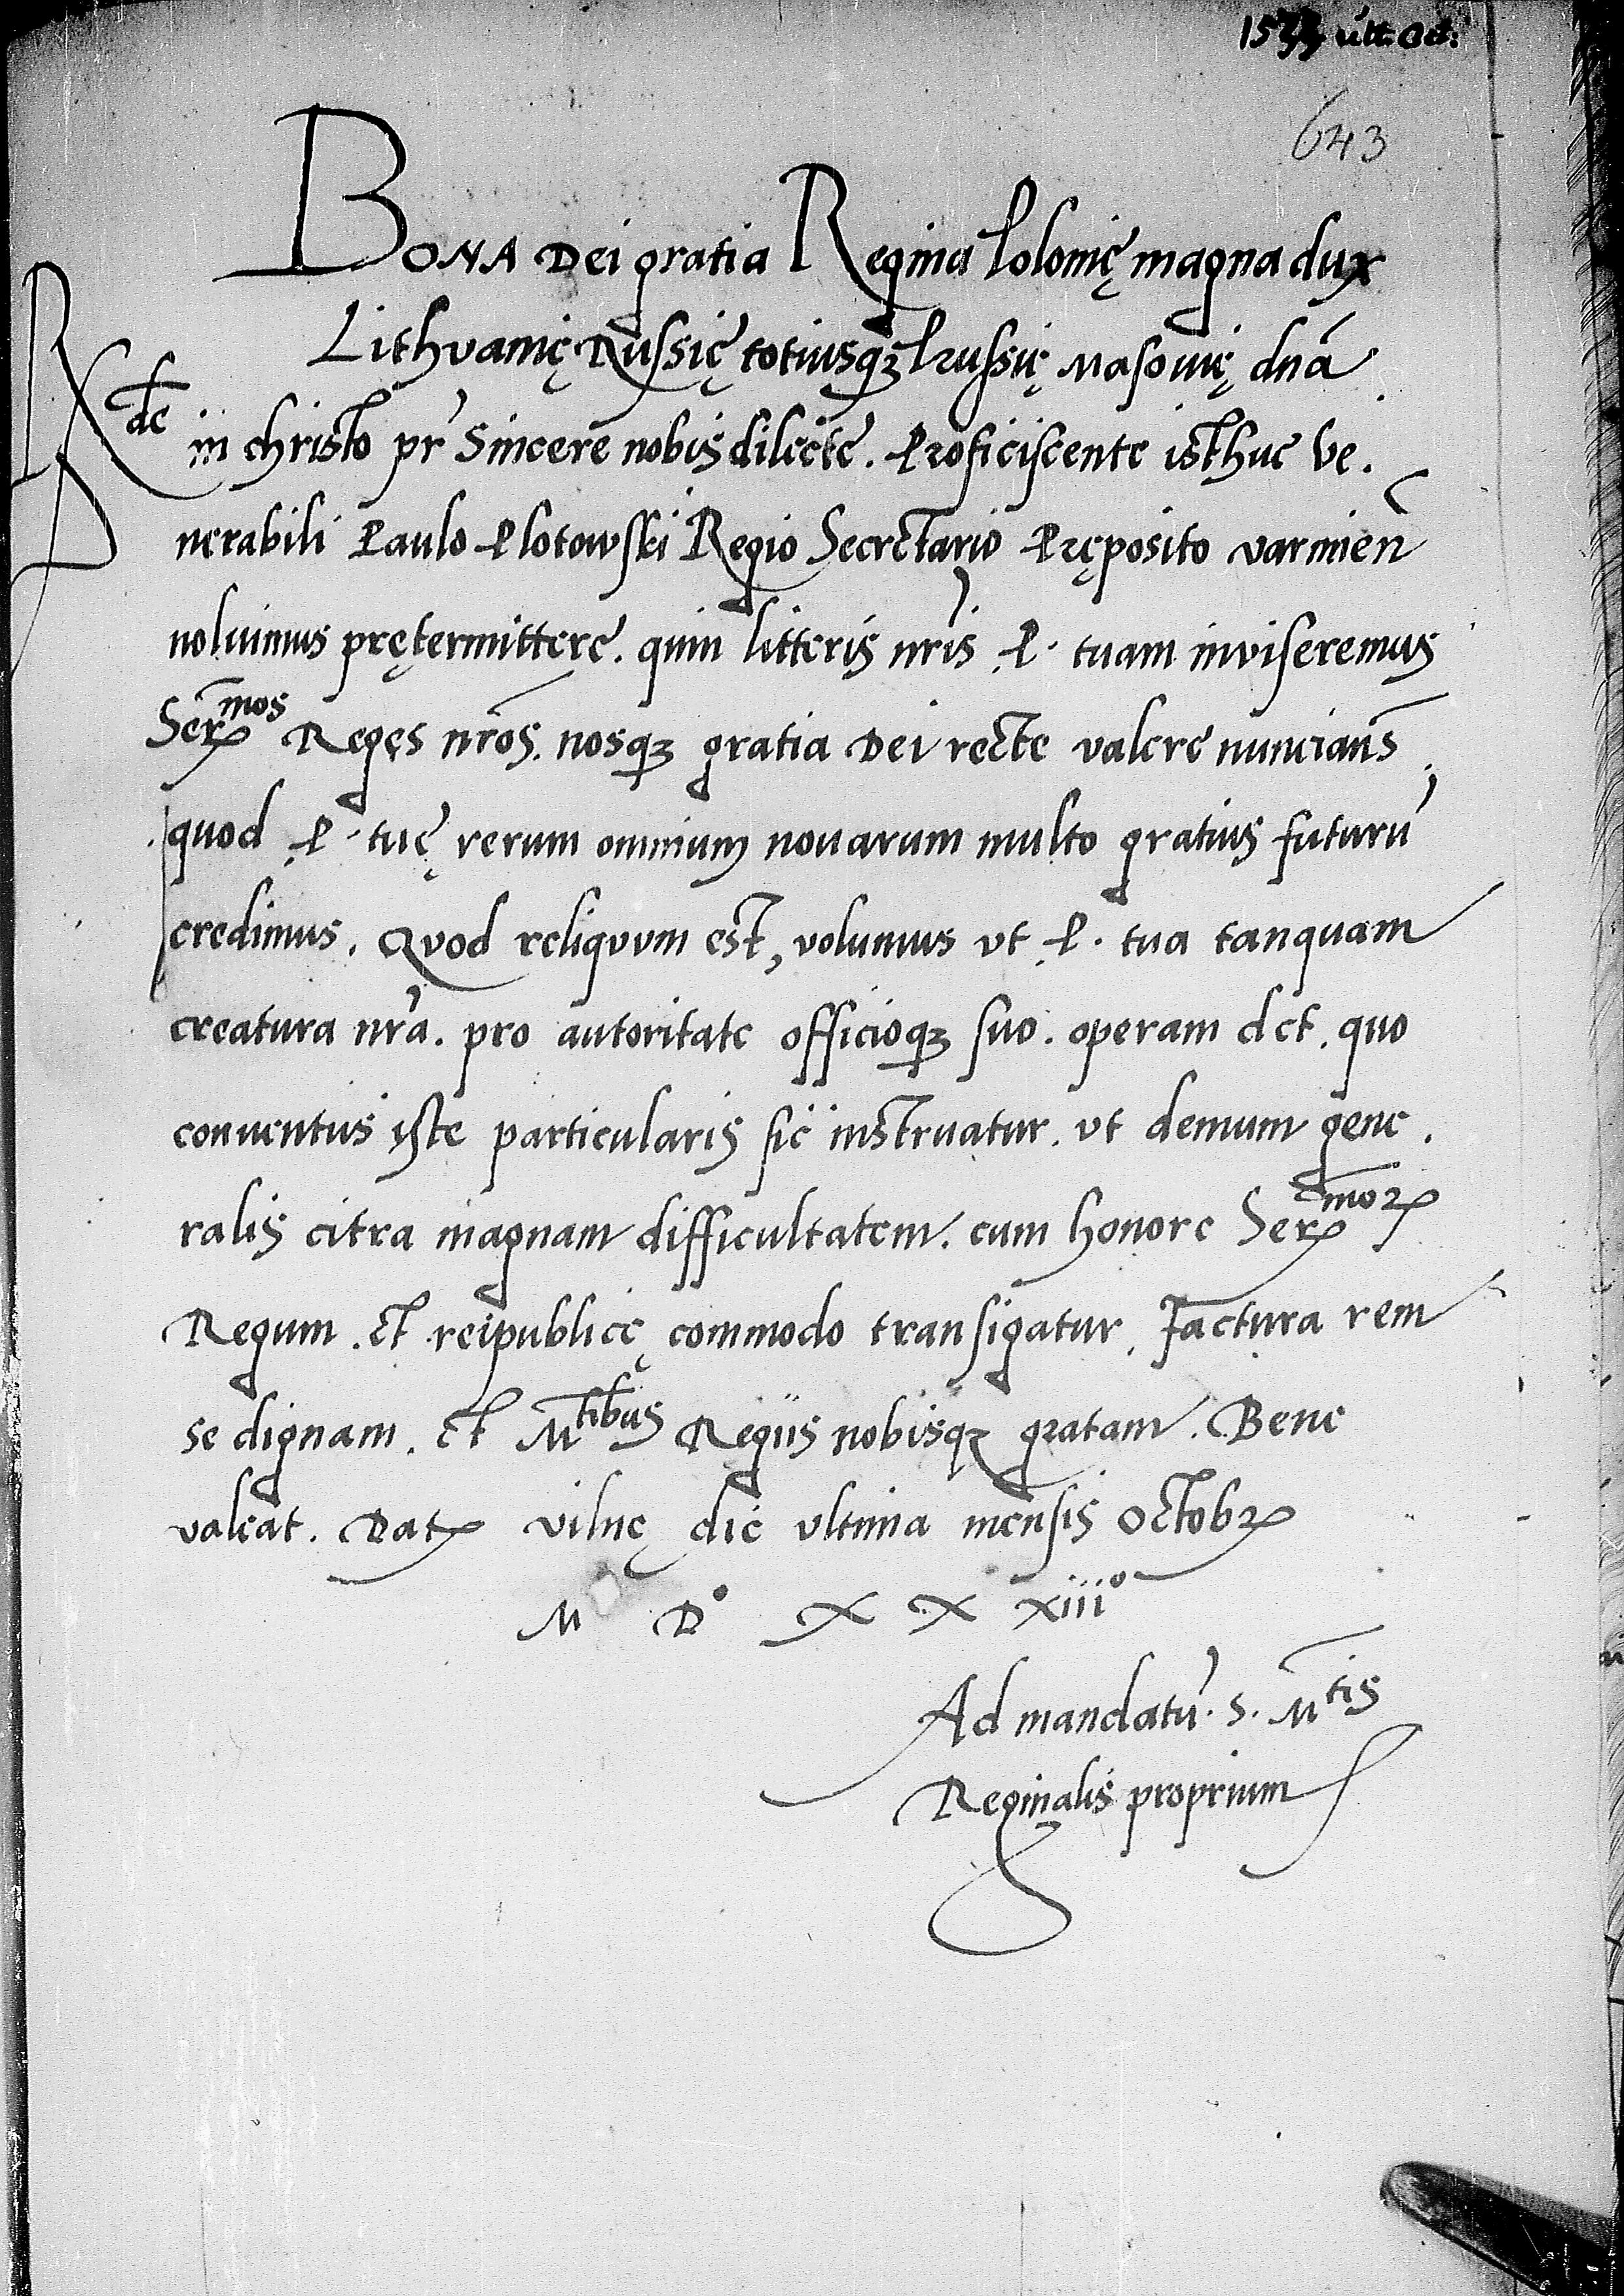 1533 ult. Oct.
643
BONA Dei gratia Regina Polonię magna dux
Lithvanię Russię totiusq₃ Prussię Masouię dnā
Rde in christo pr̄ Sincere nobis dilecte. Proficiscente isthuc Ve.
nerabili Paulo Plotowski Regio Secretario Pręposito varmień
noluimus prętermittere. quin litteris nr̄is P. tuam inviseremus
Serꝫmos Reges nr̄os. nosq₃ gratia Dei recte valere nuncian̄s.
quod P. tuę rerum omnium nouarum multo gratius futurū
credimus. Quod reliquum est, volumus vt P. tua tanquam
creatura nr̄a. pro autoritate officioq₃ suo. operam det. quo
conuentus iste particularis sic instruatur. vt demum gene.
ralis citra magnam difficultatem. cum honore Serꝫmoꝝ
Regum. et reipublicę commodo transigatur, Factura rem
se dignam. et Mtibus Regiis nobisq₃ gratam. Bene
valeat. Datꝫ vilnę die vltima mensis Octobꝝ
M D° X X xiii°
Ad mandatū. S. Mtis
Reginalis proprium